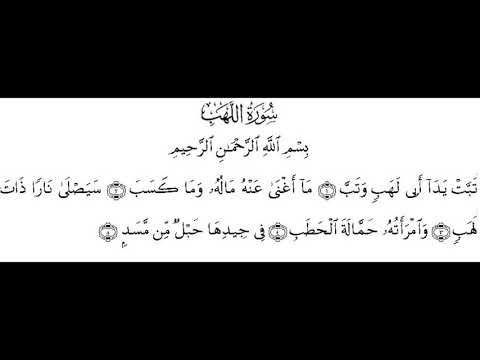 سُورَةُ اللَّهَبِ
بِسْمِ ٱللَّهِ ٱلرَّحْمَٰنِ ٱلرَّحِيمِ
تَبَّتْ يَدَآ أَبِى لَهَبٍ وَتَبَّ ۝١ مَآ أَغْنَىٰ عَنْهُ مَالُهُۥ وَمَا كَسَبَ ۝٢ سَيَصْلَىٰ نَارًا ذَاتَ
لَهَبٍ ۝٣ وَٱمْرَأَتُهُۥ حَمَّالَةَ ٱلْحَطَبِ ۝٤ فِى جِيدِهَا حَبْلٌ مِّن مَّسَدٍۭ ۝٥